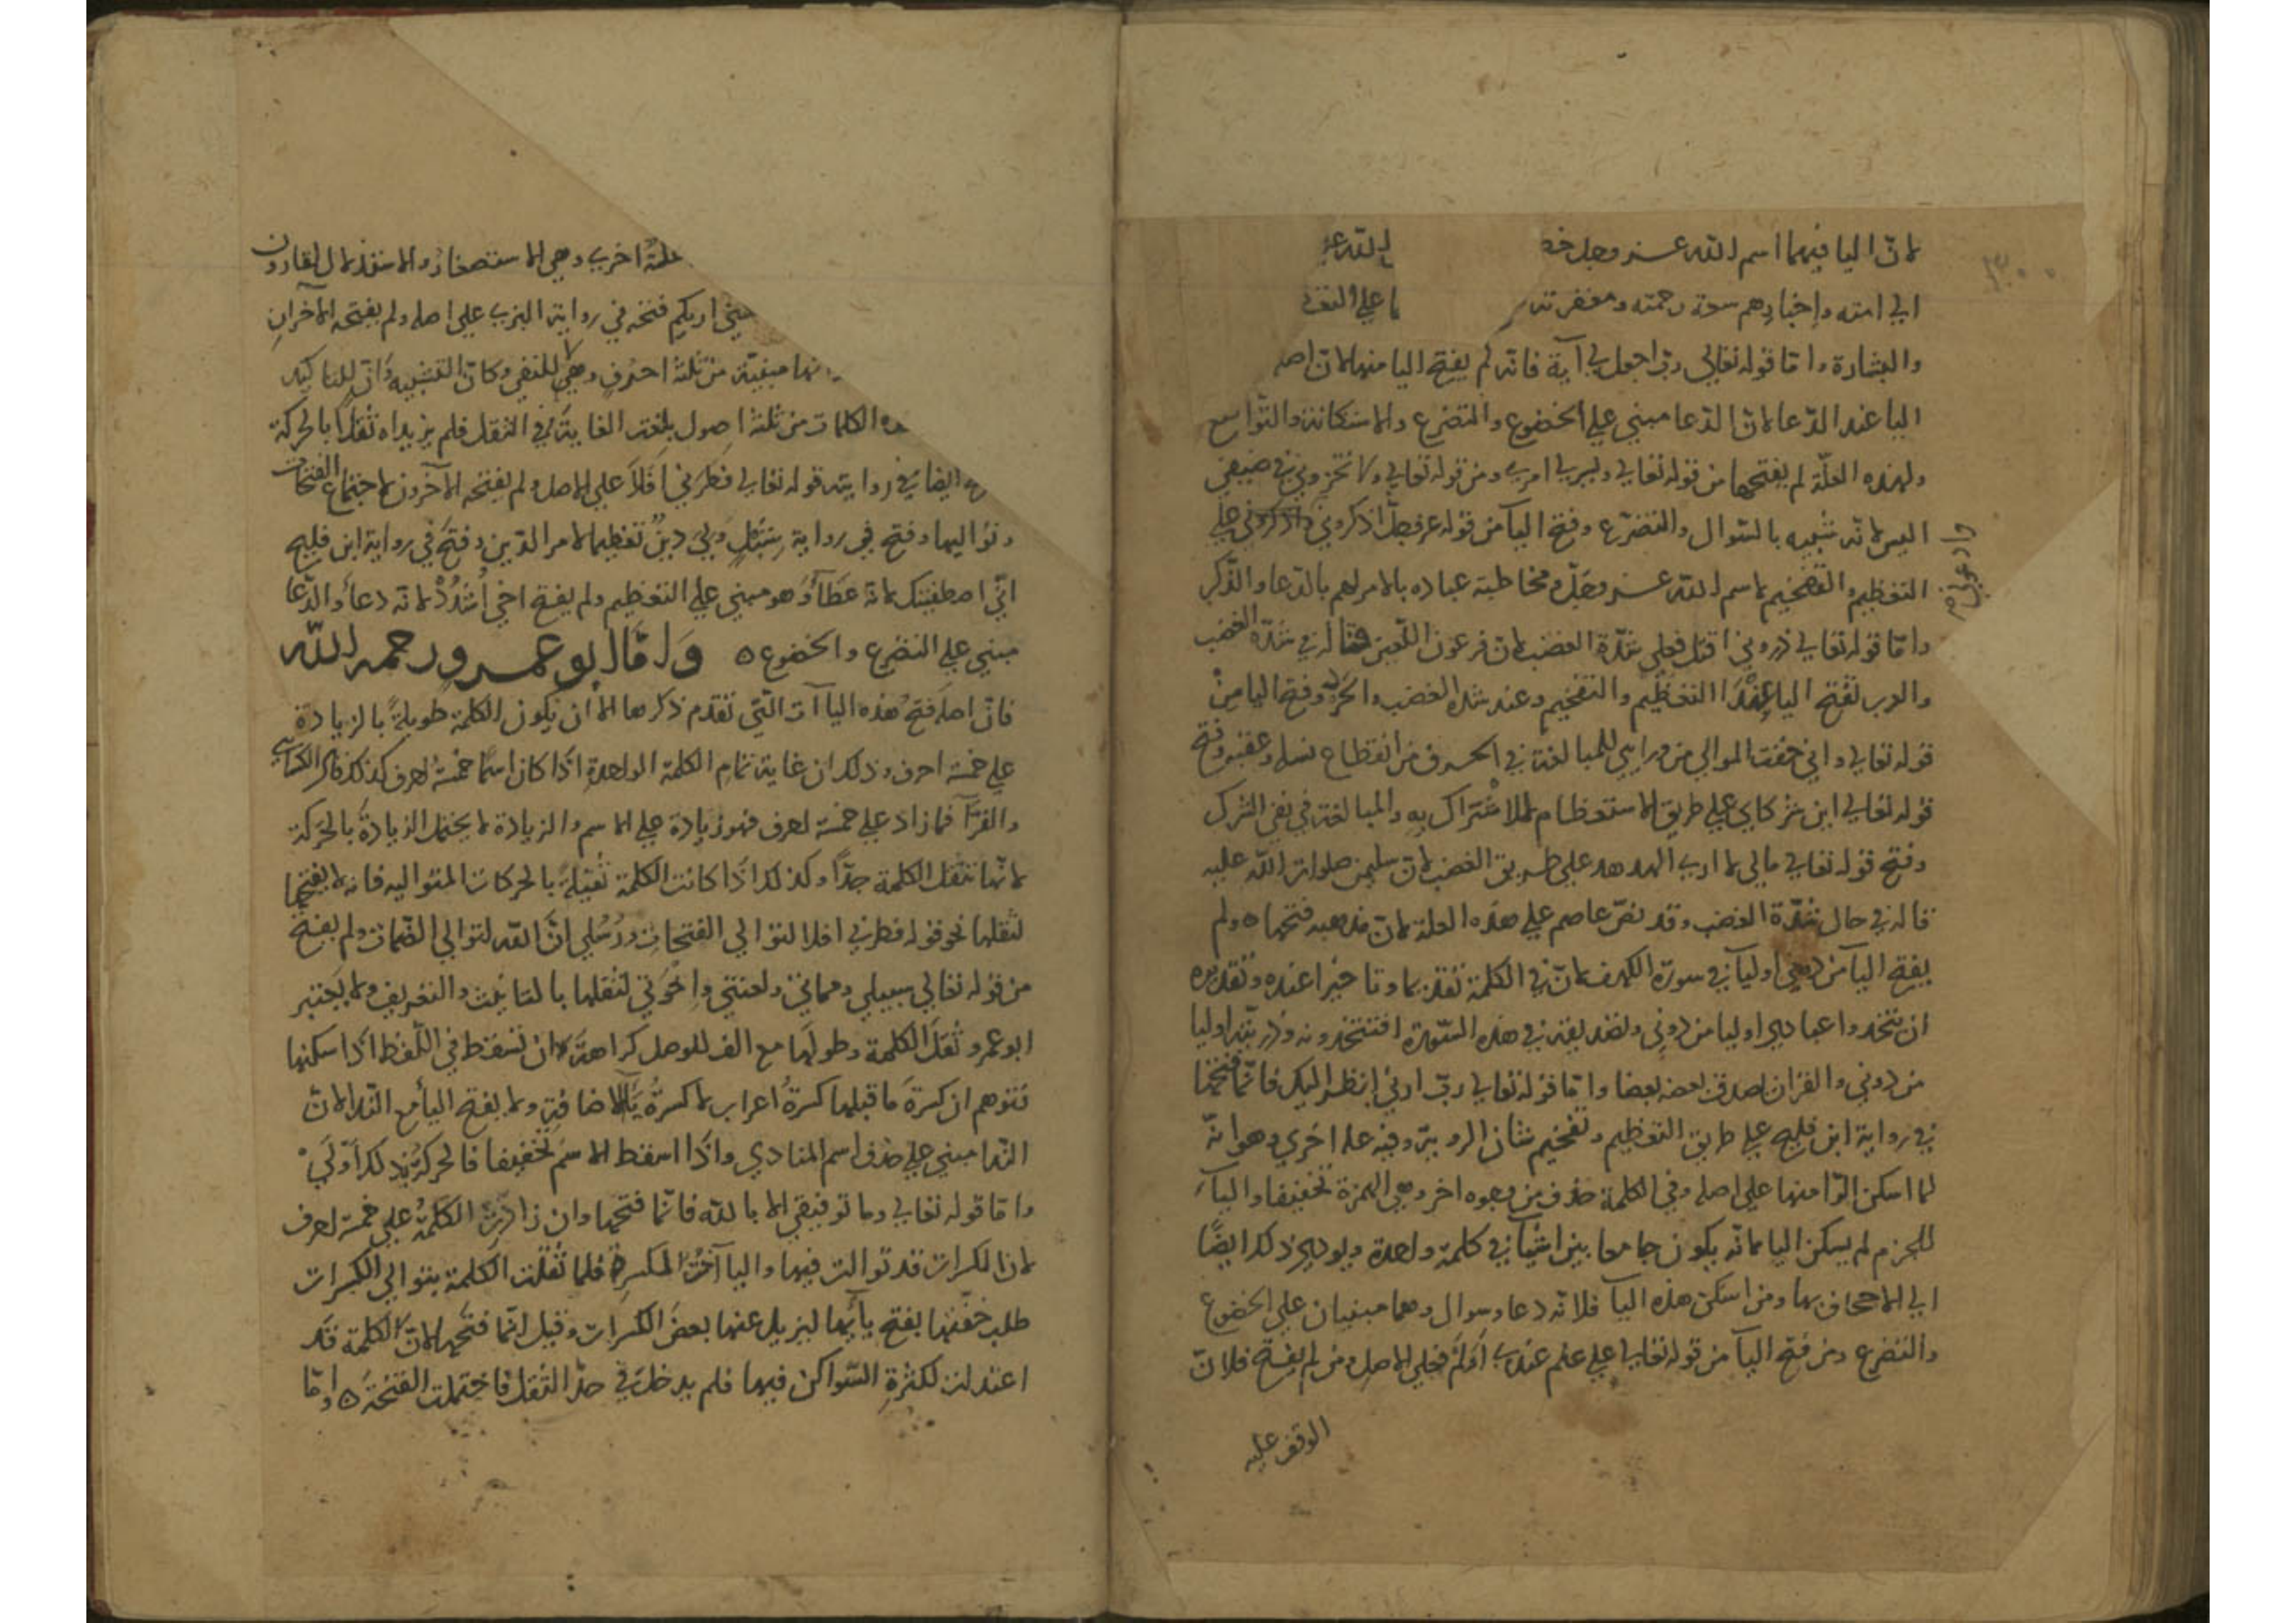 لانّ اليا فيهما اسم الله عز وجل الله عز
الي امته واخبارهم سعة رحمته ومغفرته علي
والبشارة وامّا قوله تعالي ربّ اجعل لي آية فانّه لم يفتح اليا منها لانّ اصله
اليا عند الدّعا لانّ الدّعا مبني علي الخضوع والتضرع والاستكانة والتّواضع
ولهذه العلّة لم يفتحها من قوله تعالي ويسر لي امري ومن قوله تعالي ولا تخزوني في ضيفي
اليس لانه شبيه بالسّوال والتضرّع وفتح اليا من قوله عز وجلّ اذكروني علي
التعظيم والتفخيم لاسم الله عز وجلّ ومخاطبة عباده بالامر لهم بالدّعا والذّكر
وامّا قوله تعالي ذروني اقتل فعلي شدّة الغضب لانّ فرعون اللّعين قاله في شدّة الغضب
والعرب تفتح اليا عند التعظيم والتفخيم وعند شدة الغضب وفتح اليا من
قوله تعالي واني خفت الموالي من ورايي للمبالغة في الخوف من انقطاع نسله وعقبه وفتح
قوله تعالي اين شركاي علي طريق الاستعظام للاشتراك به والمبالغة في نفي الشرك
وفتح قوله تعالي مالي لا اري الهدهد علي طريق الغضب لانّ سليمن صلوات الله عليه
قاله في حال شدّة الغضب وقد نصّ عاصم علي هذه العلة لانّ مذهبه فتحها ه ولم
يفتح اليا من دوني اوليا في سورة الكهف لانّ في الكلمة تقديما وتاخيرا عنده وتقديره
ان يتخذوا عبادي اوليا من دوني في هذه السّورة افتتخذونه وذرّيته اوليا
من دوني والقران يصدق بعضه بعضا وامّا قوله تعالي ربّ ارني انظر اليك فانّما فتحها
في رواية ابن فليح علي طريق التعظيم وتفخيم شان الروية وفيه علة اخري وهو انّه
لما اسكن الرّا منها علي اصله وفي الكلمة حذف من وجوه اخر وهي الهمزة تخفيفا واليآ
للجزم لم يسكن اليا لانّه يكون جامعا بين اشيآ في كلمة واحدة ويودي ذلك ايضًا
الي الاجحاف بها ومن اسكن هذه اليآ فلانّه دعا وسوال وهما مبنيان علي الخضوع
والتضرع ومن فتح اليآ من قوله تعالي علي علم عندي اَوَلَم فعلي الاصل ومن لم يفتح فلانّ
الوقف عليه
علّة اخري وهي الاستصغار والاستقذ لال لقارون
اريكم فتحه في رواية البزي علي اصله ولم يفتحه الآخران
مبنيّة من ثلثة احرف وهي لا للنفي وكاف التشبيه وانّ للتاكيد
الكلمات من ثلثة اصول بلغت الغاية في الثقل فلم يزيداه ثقلا بالحركة
ايضا في روايته قوله تعالي فطرني افلا علي الاصل ولم يفتحه الآخرون لاجتماع الفتحات
وتواليها وفتح في رواية قنبل ولي دين تعظيما لامر الدّين وفتح في رواية ابن فليح
انّي اصطفيتك لانه عطآ وهو مبني علي التعظيم ولم يفتح اخي اشدد لانه دعا والدّعا
مبني علي التضرع والخضوع ه وامّا ابو عمرو رحمه الله
فانّ اصله فتح هذه اليآآت الّتي تقدم ذكرها الا ان يكون الكلمة طويلة بالزيادة
علي خمسة احرف وذلك ان غاية تمام الكلمة الواحدة اذا كان اسما خمسة احرف كذلك ذكر الكسايي
والفرّآ فما زاد علي خمسة احرف فهو زيادة علي الاسم والزيادة لا يحتمل الزيادة بالحركة
لانّها تثقل الكلمة جدّا وكذلك اذا كانت الكلمة ثقيلة بالحركات المتواليه فانه لا يفتحها
لثقلها نحو قوله فطرني افلا لتوالي الفتحات ورسلي انّ الله لتوالي الضّمات ولم يفتح
من قوله تعالي سبيلي ومماتي ولعنتي واخوتي لثقلها بالتانيث والتعريف ولا يعتبر
ابو عمرو ثقل الكلمة وطولها مع الف الوصل كراهة ان تسقط في اللّفظ اذا سكنها
فتوهم ان كسرة ما قبلها كسرة اعراب لا كسرة يآ الاضافة ولا يفتح اليا مع النّدا لانّ
النّدا مبني علي حذف اسم المنادي واذا اسقط الاسم تخفيفا فالحركة بذلك اولي
وامّا قوله تعالي وما توفيقي الا بالله فانّما فتحها وان زادت الكلمة علي خمسة احرف
لانّ الكسرات قد توالت فيها واليا اخت الكسرة فلما ثقلت الكلمة بتوالي الكسرات
طلب خفّتها بفتح يآيها ليزيل عنها بعض الكسرات وقيل انّما فتحها لانّ الكلمة قد
اعتدلت لكثرة السّواكن فيها فلم يدخل في حدّ الثقل فاحتملت الفتحة ه وامّا